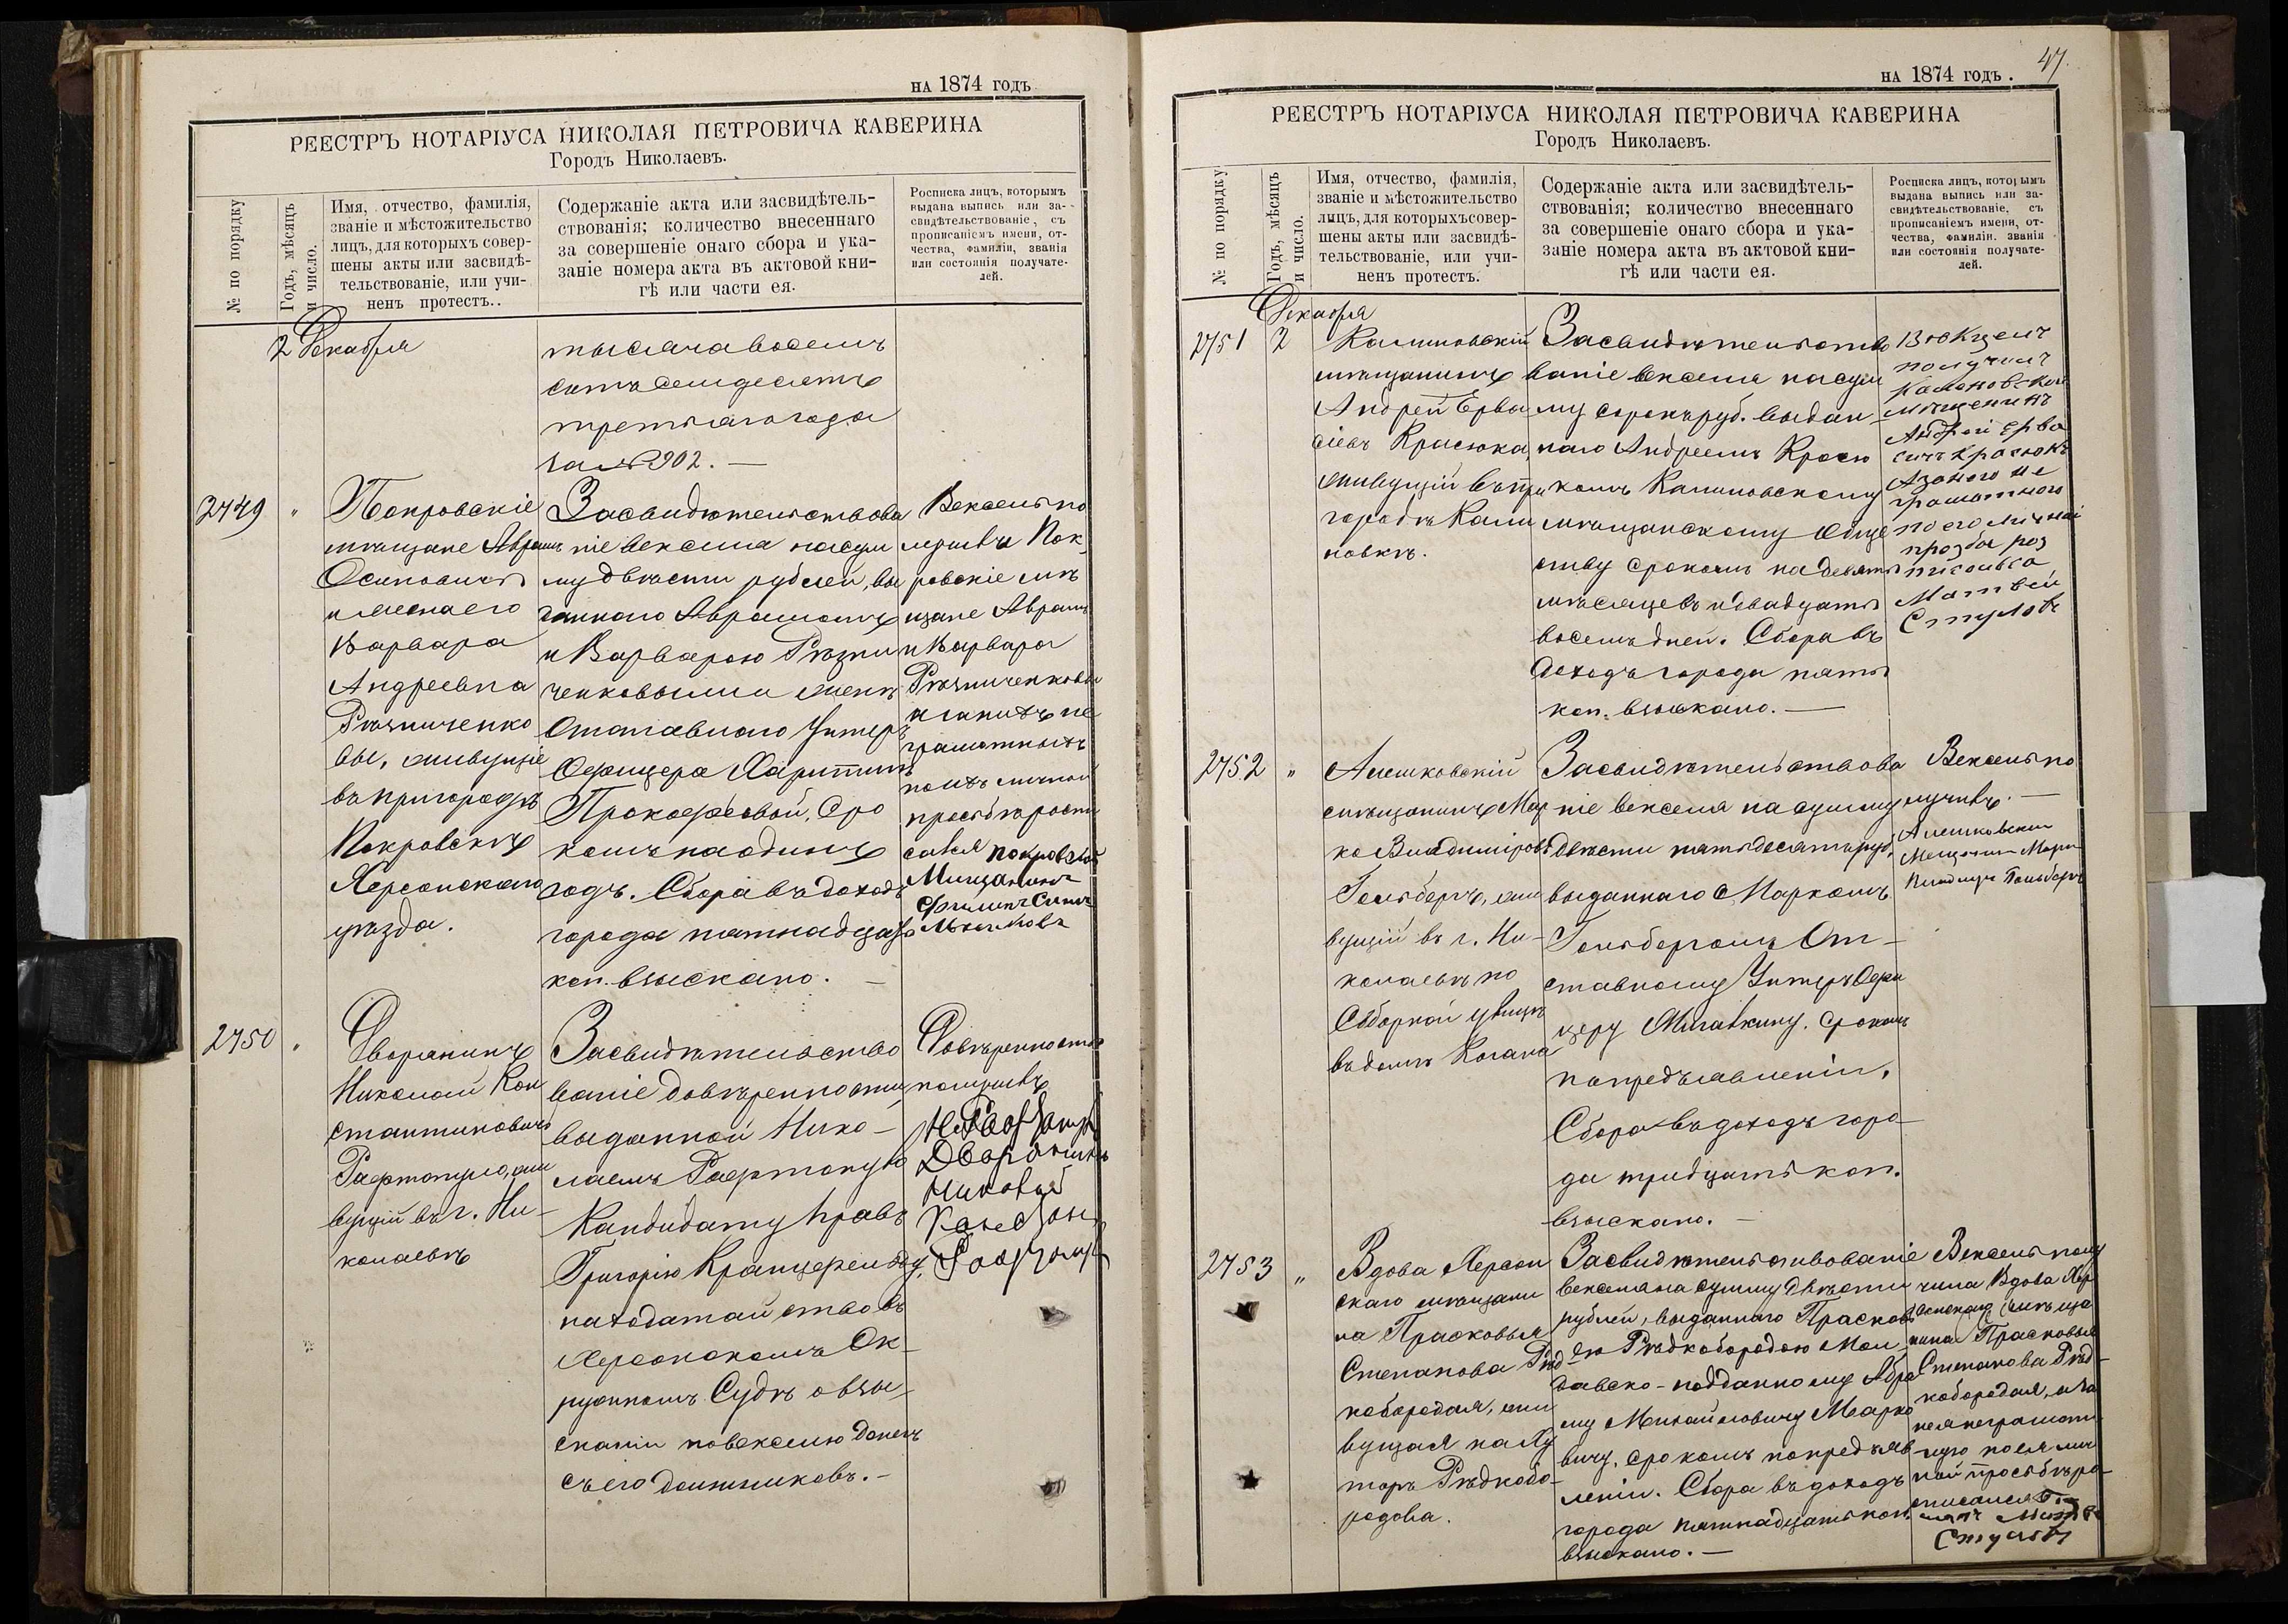 на 1874 годъ
РЕЕСТРЪ НОТАРІУСА НИКОЛАЯ ПЕТРОВИЧА КАВЕРИНА
Городъ Николаевъ.
№ по порядку
Годъ, мѣсяцъ
и число.
Имя, отчество, фамилія,
званіе и мѣстожительство
лицъ, для которыхъ совер-
шены акты или засвидѣ-
тельствованіе, или учи-
ненъ протестъ..
Содержаніе акта или засвидѣтель-
ствованія; количество внесеннаго
за совершеніе онаго сбора и ука-
заніе номера акта въ актовой кни-
гѣ или части ея.
Росписка лицъ, которымъ
выдана выпись или за-
свидѣтельствованіе, съ
прописаніемъ имени, от-
чества, фамиліи, званія
или состоянія получате-
лей.
2 Декабря
тысяча восемь
сотъ семдесятъ
третьяго года
за № 902. —
2749 "
Покровскіе
мѣщане Аврамъ
Осиповичъ
и жена его
Варвара
Андреевна
Рѣзниченко
вы, живущіе
въ пригородѣ
Покровскѣ
Херсонскаго
уѣзда.
Засвидѣтельствова
ніе векселя на сум
му двѣсти рублей, вы
даннаго Аврамомъ
и Варварою Рѣзни
ченковыми женѣ
Отставнаго Унтеръ
Офицера Харитинѣ
Прокофьевой, сро
комъ на одинъ
годъ. Сбора въ доходъ
города пятнадцать
коп. взыскано. —
Вексель по
лучивъ Пок
ровскіе мѣ
щане Аврамъ
и Варвара
Рѣзниченковы
а за нихъ не
грамотныхъ
по ихъ личной
просьбѣ роспи
сался Покровской
Мищанинъ
Филипъ
2750 "
Дворянинъ
Николай Кон
стантиновичъ
Рафтопуло, жи
вущій въ г. Ни-
колаевѣ
Засвидѣтельство
ваніе довѣренности
выданной Нико-
лаемъ Рафтопуло
Кандидату правъ
Григорію Кранцфельду,
на ходатайство въ
Херсонскомъ Ок-
ружномъ Судѣ о взы-
сканіи по векселю денегъ
съ его должниковъ. —
Довѣренность
получивъ
Дворянинъ
Николай
на 1874 годъ.
47.
РЕЕСТРЪ НОТАРІУСА НИКОЛАЯ ПЕТРОВИЧА КАВЕРИНА
Городъ Николаевъ.
№ по порядку
Годъ, мѣсяцъ
и число.
Имя, отчество, фамилія,
званіе и мѣстожительство
лицъ, для которыхъ совер-
шены акты или засвидѣ-
тельствованіе, или учи-
ненъ протестъ.
Содержаніе акта или засвидѣтель-
ствованія; количество внесеннаго
за совершеніе онаго сбора и ука-
заніе номера акта въ актовой кни-
гѣ или части ея.
Росписка лицъ, которымъ
выдана выпись или за-
свидѣтельствованіе, съ
прописаніемъ имени, от-
чества, фамиліи, званія
или состоянія получате-
лей.
Декабря
2751 2
Калиновскій
мѣщанинъ
Андрей Ерва
сіевъ Красюкъ,
живущій въ при
городѣ Кали
новкѣ.
Засвидѣтельство
ваніе векселя на сум
му сорокъ руб. выдан-
наго Андреемъ Красю
комъ Калиновскому
мѣщанскому Обще
ству срокомъ на девять
мѣсяцевъ и двадцать
восемь дней. Сбора въ
доходъ города пять
коп. взыскано. —
получилъ
Андрей Ерва
сичъ Красюкъ
А за него не
грамотного
по его личной
прозбы роз
писолься
Матвѣй
Стуловъ
2752 "
Алешковскій
мѣщанинъ Мар
ко Владиміровъ
Гольбергъ, жи
вущій въ г. Ни-
колаевѣ по
Соборной улицѣ
въ домѣ Когана
Засвидѣтельствова
ніе векселя на сумму
двѣсти пятьдесятъ руб.
выданнаго Маркомъ
Гольбергомъ От-
ставному Унтеръ Офи
церу Мигавкину. срокомъ
по предъявленіи.
Сбора въ доходъ горо-
да тридцать коп.
взыскано. —
Вексель по
лучивъ. —
Алешковски
Мещанинъ Марк
Гольбергъ
2753 "
Вдова Херсон
скаго мѣщани
на Прасковья
Степанова Рѣд
кобородая, жи
вущая на Ху
торѣ Рѣдкобо-
родова.
Засвидѣтельствованіе
векселя на сумму двѣсти
рублей, выданнаго Прасковь
ею Рѣдкобородою Мол-
давско-подданному Абра
му Михайловичу Марко
вичу. срокомъ по предъяв
леніи. Сбора въ доходъ
города пятнадцать коп.
взыскано. —
Вексель полу
чила Вдова Хер
сонскаго мѣща
нина Прасковья
Степанова Рѣд-
кобородая, а за
нея неграмот
ную по ея лич
ной просьбѣ ро-
списался
Стуловъ